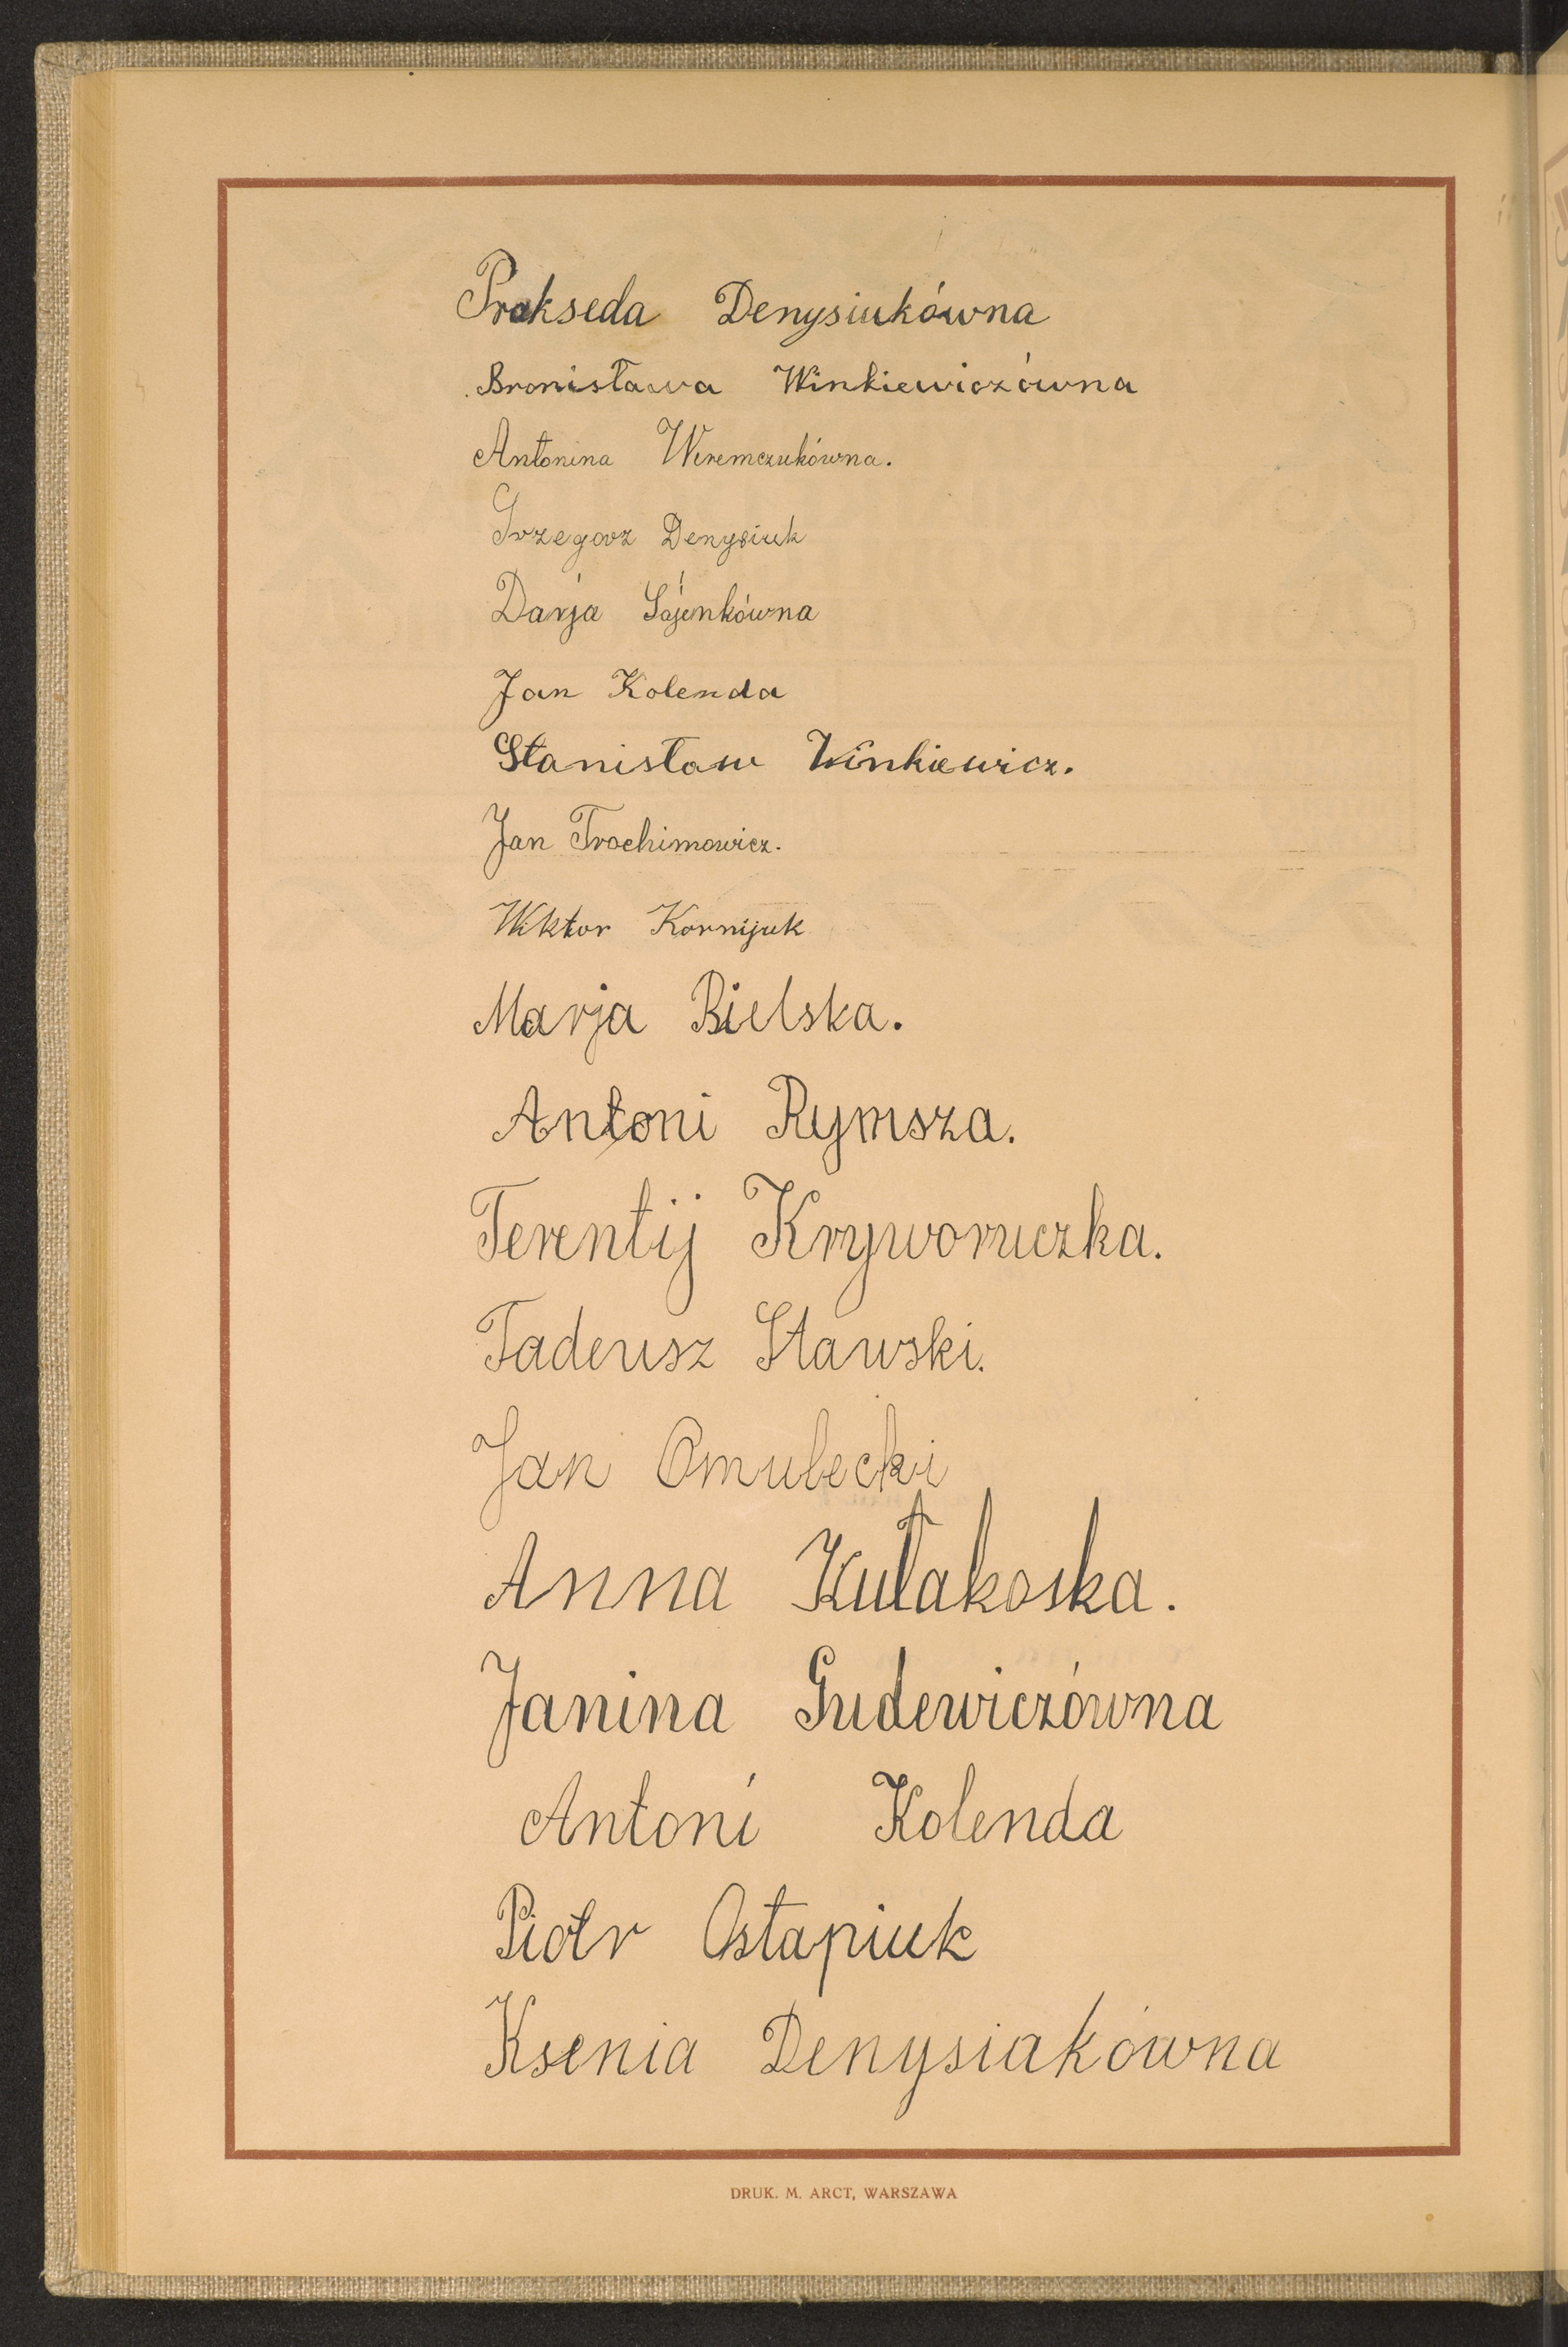 Prakseda Denysiukówna
Bronisława Winkiewiczówna
Antonina Weremczukówna.
Grzegorz Denysiuk
Darja Sajenkówna
Jan Kolenda
Stanisław Winkiewicz.
Jan Trochimowicz.
Wiktor Kornijuk
Marja Bielska.
Antoni Rymsza.
Terentij Kryworuczka.
Tadeusz Stawski.
Jan Omulecki
Anna Kułakoska.
Janina Gudewiczówna
Antoni Kolenda
Piotr Ostapiuk
Ksenia Denysiakówna
DRUK. M. ARCT, WARSZAWA